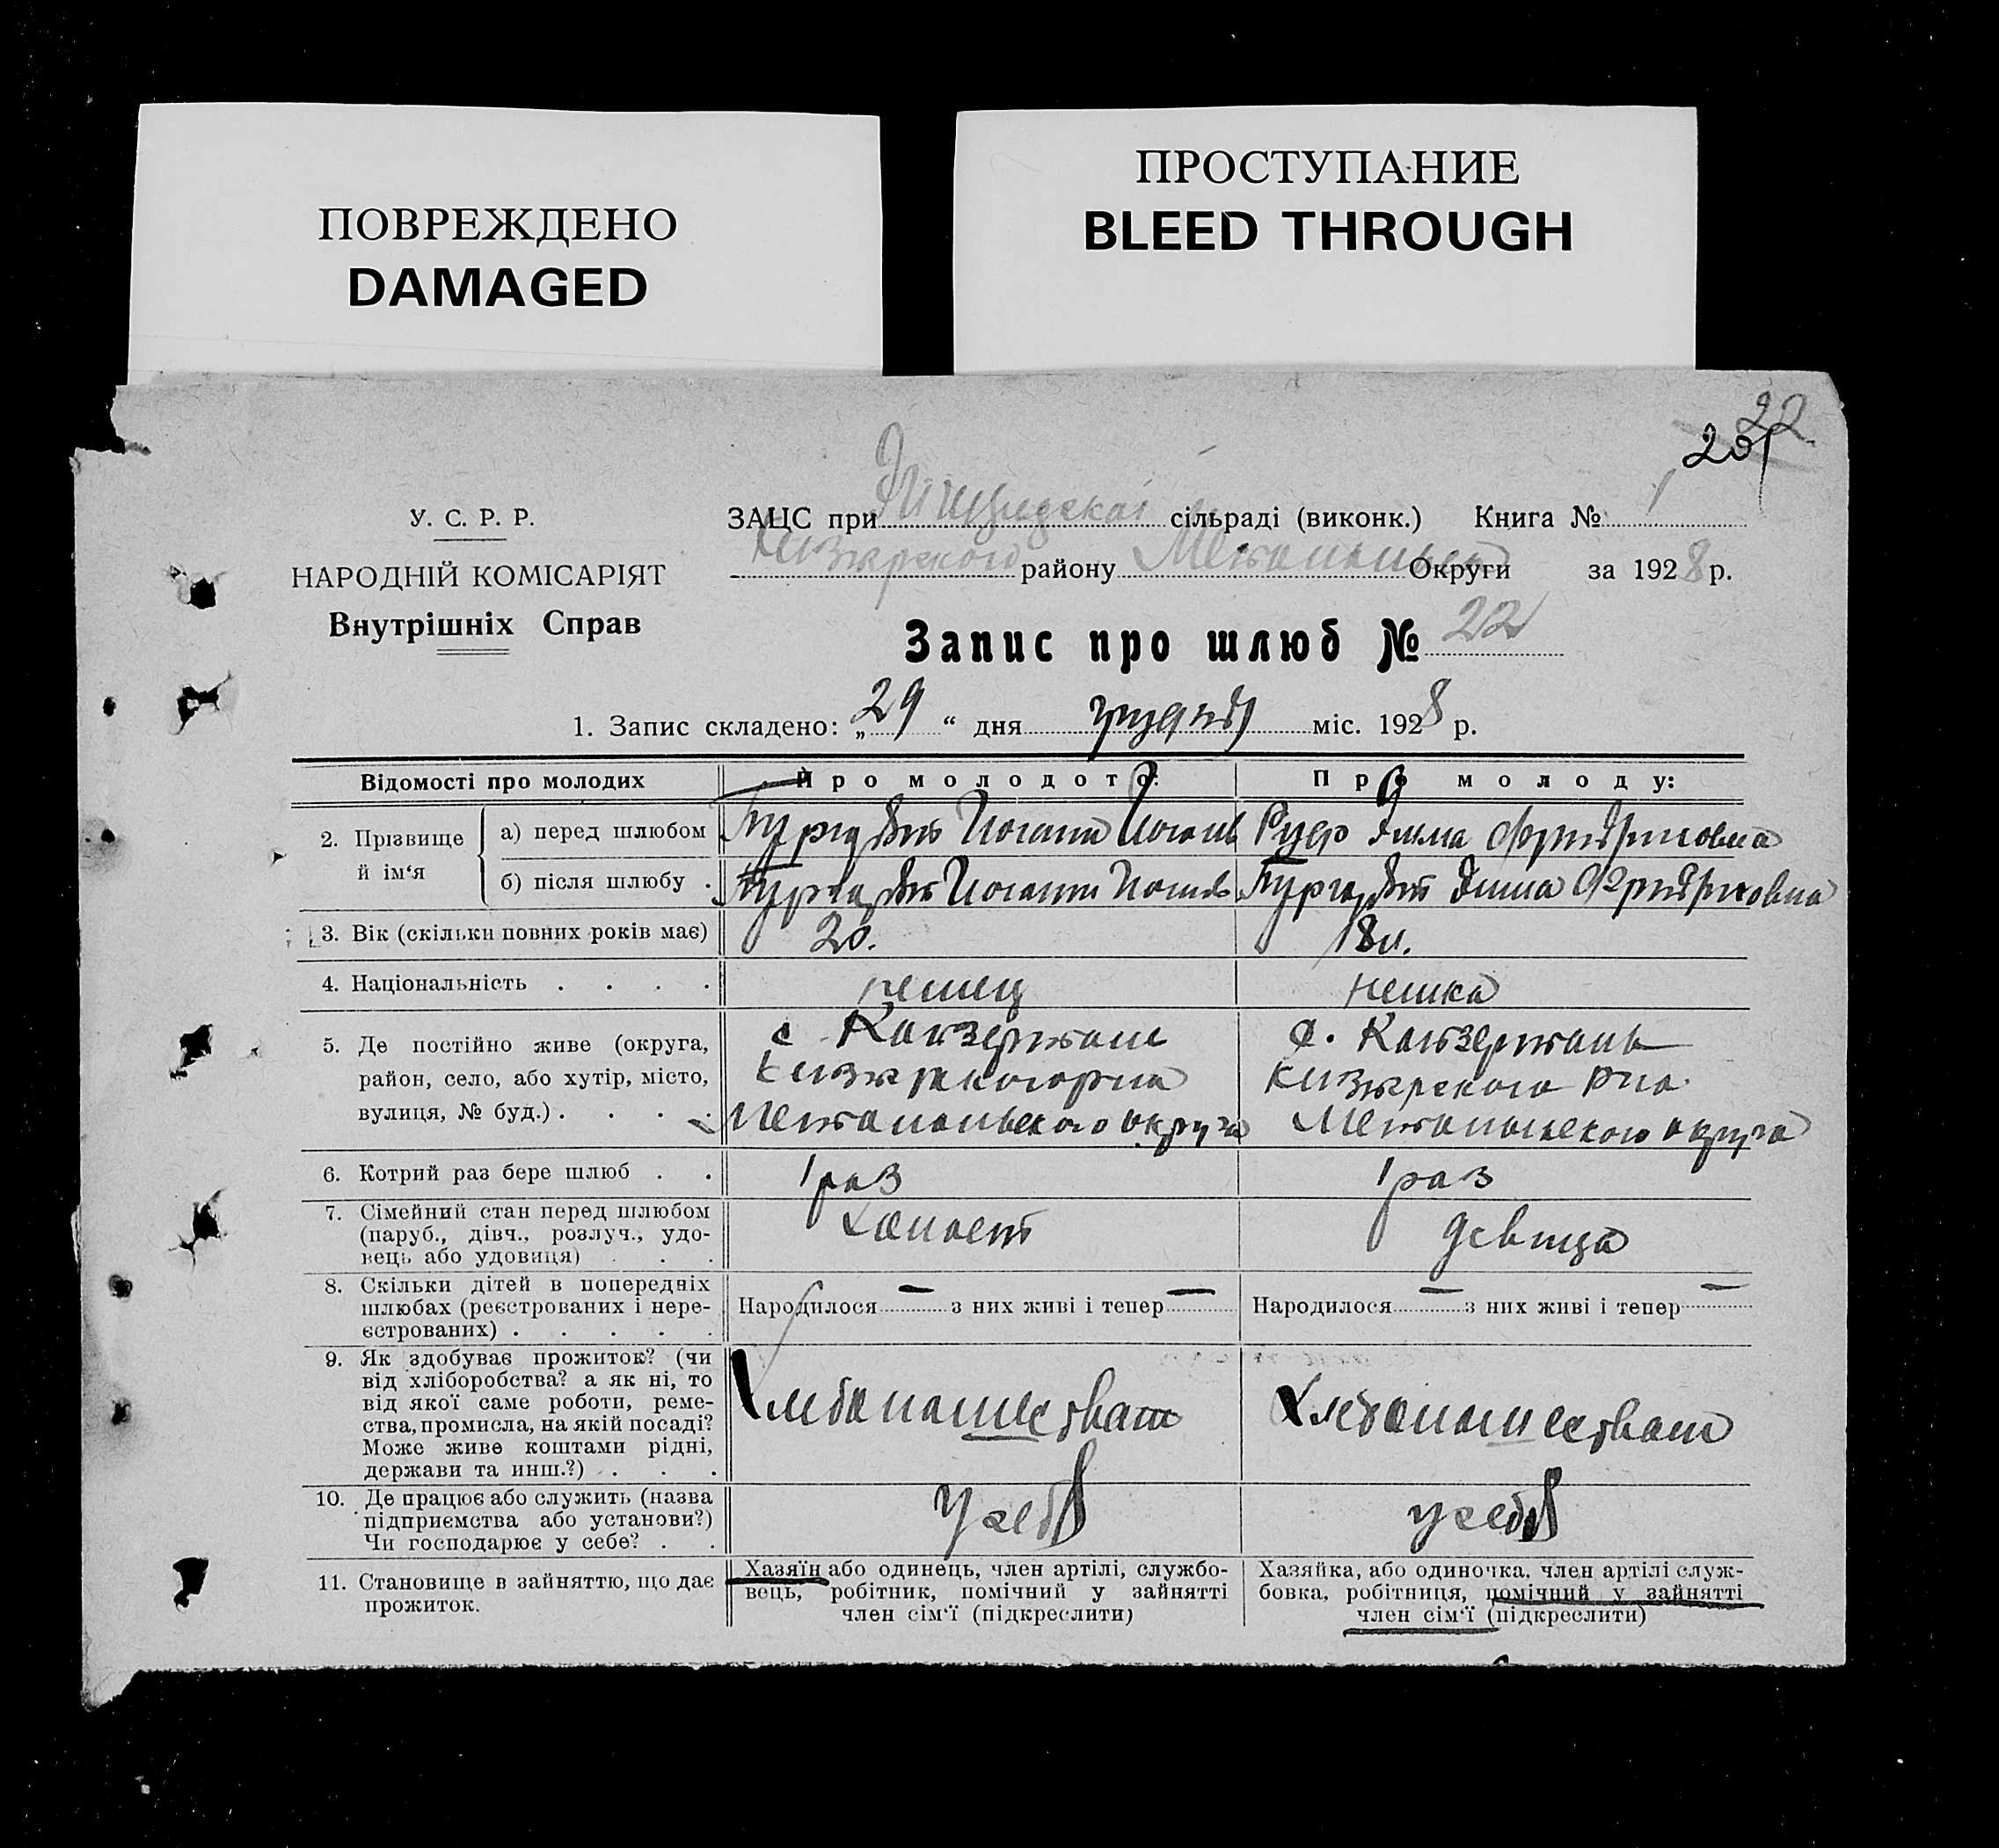 ПОВРЕЖДЕНО
DAMAGED
ПРОСТУПАНИЕ
BLEED THROUGH
22
201
У. С. Р. Р.
НАРОДНІЙ КОМІСАРІЯТ
Внутрішніх Справ
ЗАЦС при сільраді (виконк.) Книга № 1
району Округи за 1928 р.
Запис про шлюб № 22
1. Запис складено: „29“ дня грудня міс. 1928 р.
Відомості про молодих
Про молодого:
Про молоду:
2. Прізвище й ім‘я
а) перед шлюбом
Иоганн
Фридриховна
б) після шлюбу .
Иоганн
Фридриховна
3. Вік (скільки повних років має)
20.
18 л.
4. Національність . . . .
немец
немка
5. Де постійно живе (округа,
район, село, або хутір, місто,
вулиця, № буд.) . . . .
с Кайзерталь
Мелитопольского округа
с. Кайзерталь
Мелитопольского округа
6. Котрий раз бере шлюб . .
1 раз
1 раз
7. Сімейний стан перед шлюбом
(паруб., дівч., розлуч., удо-
вець або удовиця) . . .
холост
девица
8. Скільки дітей в попередніх
шлюбах (реєстрованих і нере-
єстрованих) . . . . .
Народилося — з них живі і тепер —
Народилося — з них живі і тепер —
9. Як здобуває прожиток? (чи
від хліборобства? а як ні, то
від якої саме роботи, реме-
ства, промисла, на якій посаді?
Може живе коштами рідні,
держави та инш.?) . . .
10. Де працює або служить (назва
підприємства або установи?)
Чи господарює у себе? . .
у себя
у себя
11. Становище в зайняттю, що дає
прожиток.
Хазяїн або одинець, член артілі, службо-
вець, робітник, помічний у зайнятті
член сім‘ї (підкреслити)
Хазяйка, або одиночка, член артілі служ-
бовка, робітниця, помічний у зайнятті
член сім‘ї (підкреслити)